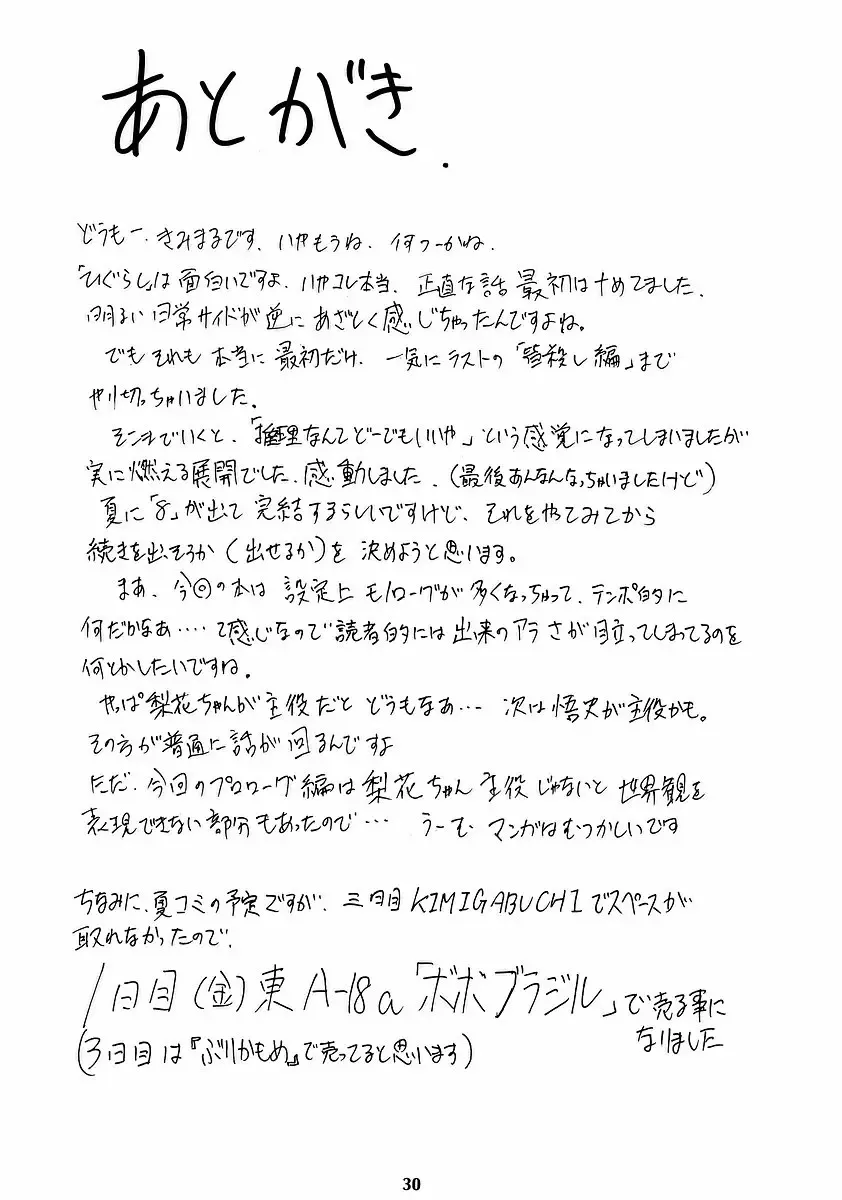 あとがき.
どうもー、きみまるです、いやもうね、何つーかね、
「ひぐらし」は面白いですよ、いやコレ本当、正直な話 最初はナメてました、
明るい日常サイドが逆にあざとく感じちゃったんですよね。
でもそれも本当に最初だけ、一気にラストの「皆殺し編」まで
やり切っちゃいました。
そこまでいくと、「推理なんてどーでもいいや」という感覚になってしまいましたが
実に燃える展開でした、感動しました、(最後あんなんなっちゃいましたけど)
夏に「8」が出て完結するらしいですけど、それをやってみてから
続きを出そうか(出せるか)を決めようと思います。
まあ、今回の本は設定上モノローグが多くなっちゃって、テンポ的に
何だかなあ‥‥て感じなので読者的には出来のアラさが目立ってしまってるのを
何とかしたいですね。
やっぱ梨花ちゃんが主役だとどうもなあ… 次は悟史が主役かも。
その方が普通に話が回るんですよ
ただ、今回のプロローグ編は梨花ちゃん主役じゃないと世界観を
表現できない部分もあったので… うーむ マンガはむつかしいです
ちなみに、夏コミの予定ですが、三日目KIMIGABUCHIでスペースが
取れなかったので、
1日目(金)東A-18a「ボボブラジル」で売る事に
なりました
(3日目は『ぶりかもめ』で売ってると思います)
30